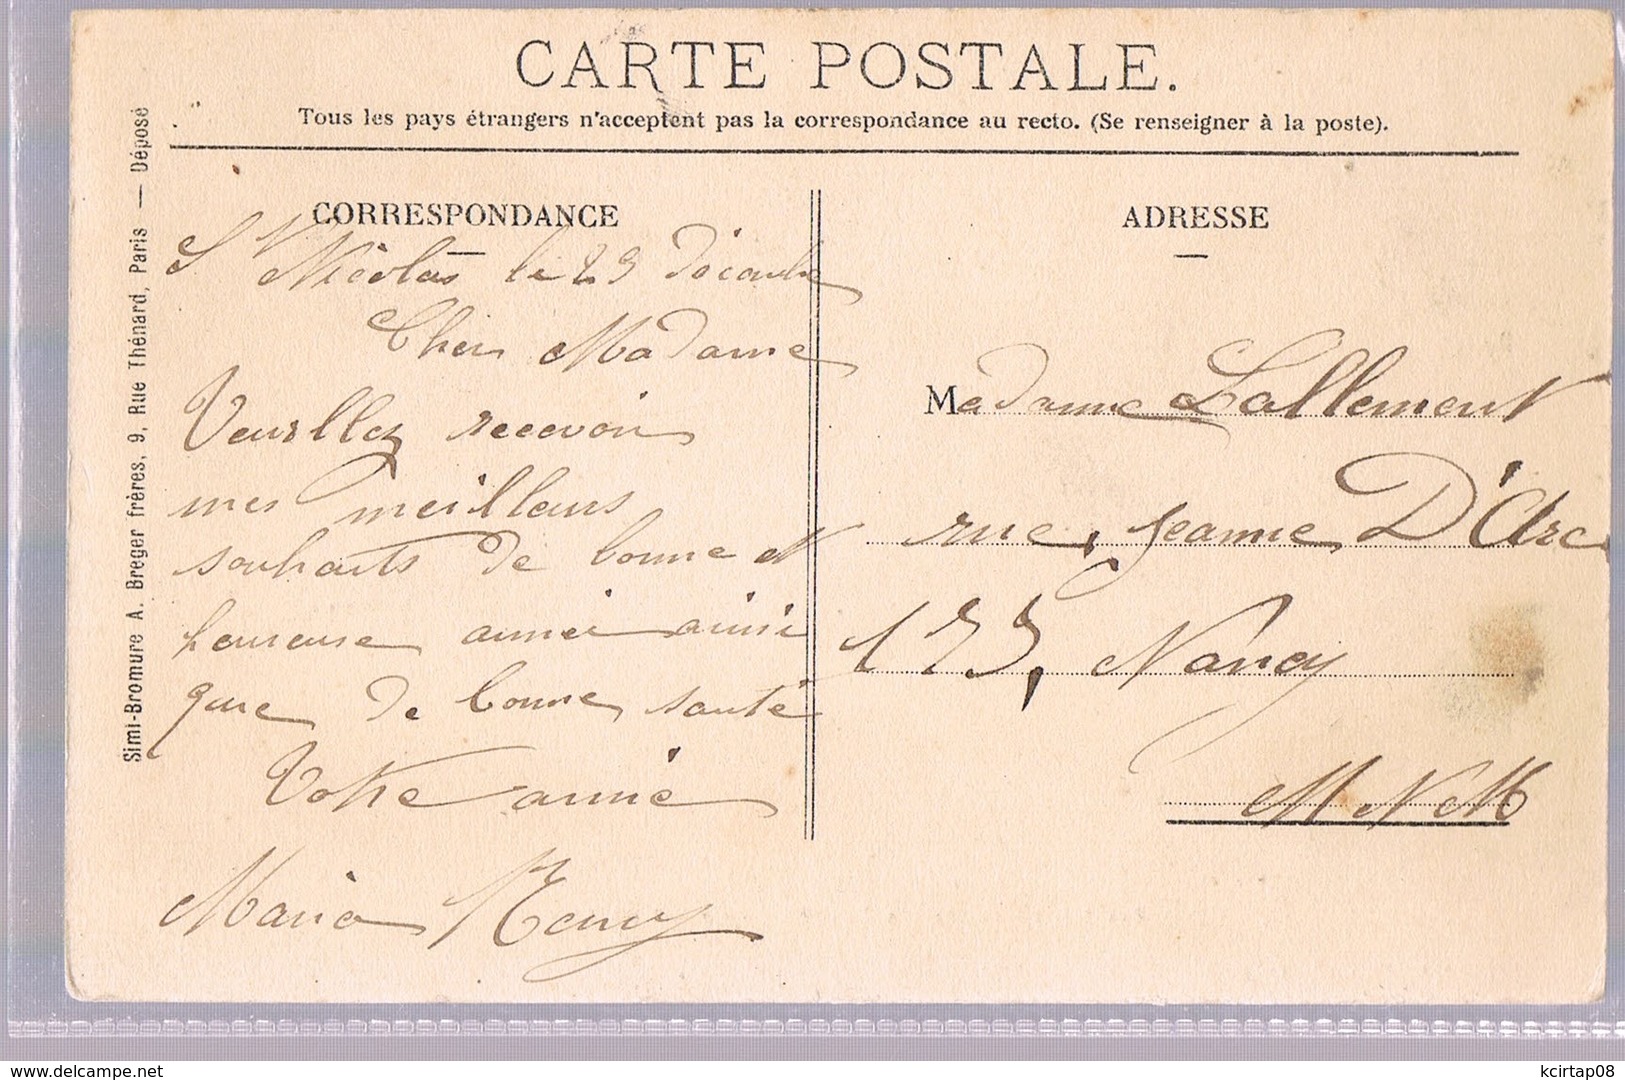 CARTE POSTALE.
Tous les pays étrangers n'acceptent pas la correspondance au recto. (Se renseigner à la poste).
Simi-Bromure A. Breger frères, 9, Rue Thénard, Paris — Déposé
CORRESPONDANCE
St Nicolas le 29 décembre
Cher Madame
Veuillez recevoir
mes meilleurs
souhaits de bonne et
heureuse année ainsi
que de bonne santé
Votre amie
Maria Remy
ADRESSE
Madame Lallement
rue, Jeanne D'Arc
133, Nancy
M et M
www.delcampe.net
kcirtap08